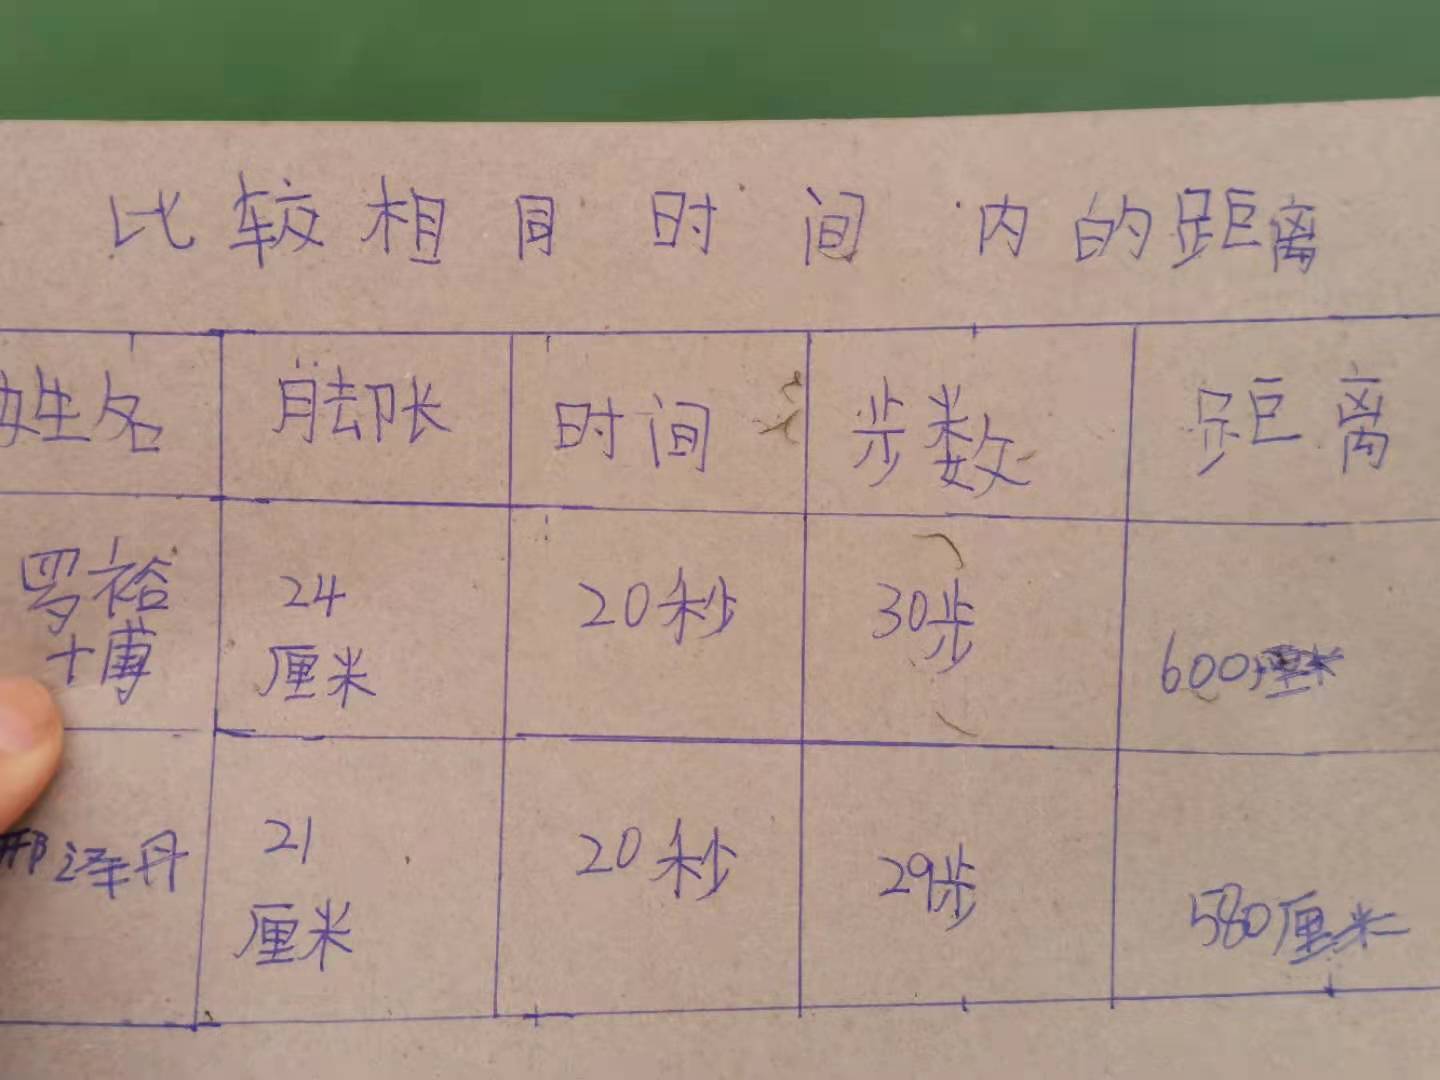 比较相同时间内的距离
姓名 脚长 时间 步数 距离
罗裕博 24厘米 20秒 30步 600厘米
邢泽丹 21厘米 20秒 29步 580厘米